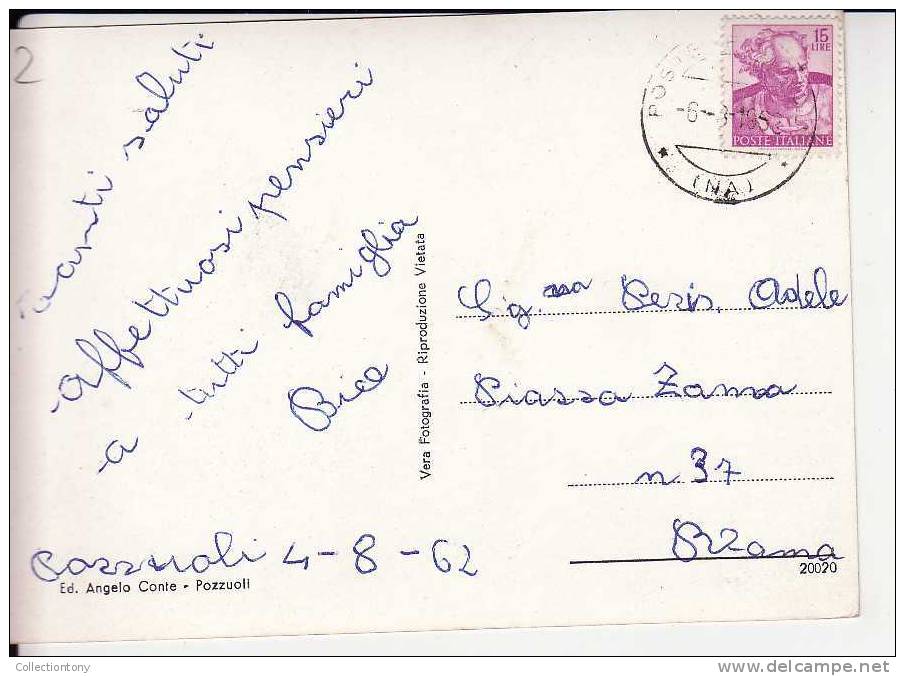 2
Tanti saluti
Affettuosi pensieri
a tutti famiglia
Bice
Pozzuoli 4-8-62
Ed. Angelo Conte - Pozzuoli
Vera Fotografia - Riproduzione Vietata
15
LIRE
POSTE ITALIANE
(NA)
Sig.na Peris. Adele
Piazza Zama
n 37
20020
Collectiontony
delcampe.net